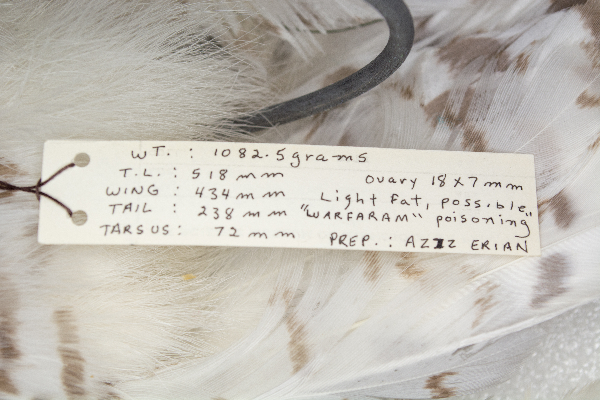 WT. : 1082.5 grams
T.L. : 518 mm
WING : 434 mm
TAIL : 238 mm
TARSUS : 72 mm
Ovary 18 x 7 mm
Light fat, possible
"WARFARAM" poisoning
PREP. : AZIZ ERIAN